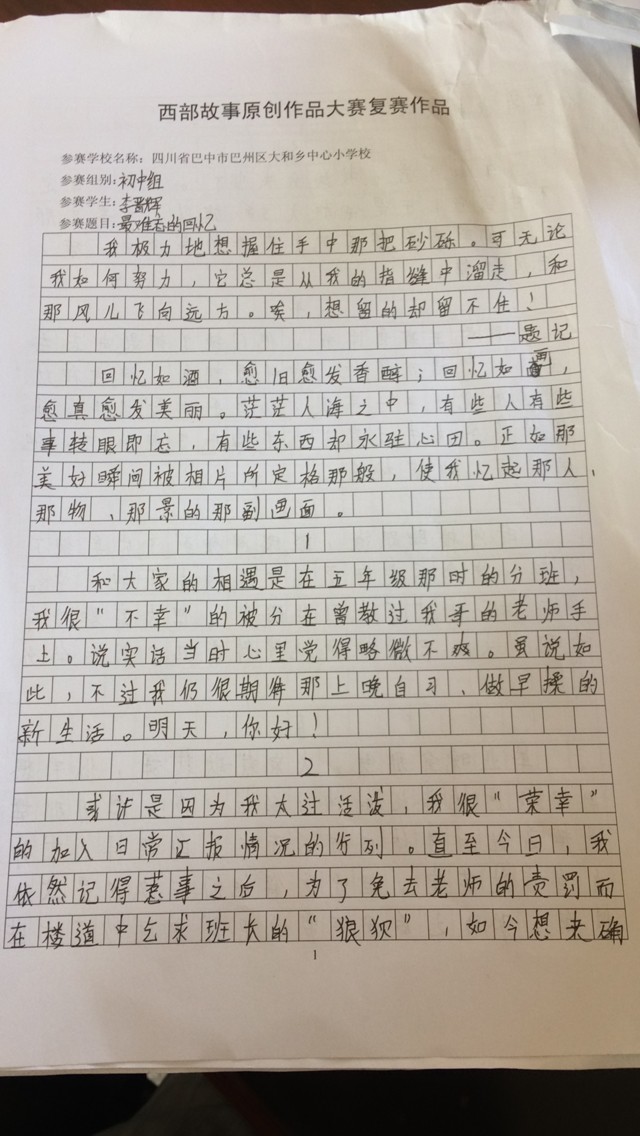 西部故事原创作品大赛复赛作品
参赛学校名称：四川省巴中市巴州区大和乡中心小学校
参赛组别：初中组
参赛学生：李晋辉
参赛题目：最难忘的回忆
我极力地想握住手中那把砂砾。可无论
我如何努力，它总是从我的指缝中溜走，和
那风儿飞向远方。唉，想留的却留不住！
——题记
回忆如酒，愈旧愈发香醇；回忆如，
愈真愈发美丽。茫茫人海之中，有些人有些
事转眼即忘，有些东西却永驻心田。正如那
美好瞬间被相片所定格那般，使我忆起那人、
那物、那景的那副画面。
1
和大家的相遇是在五年级那时的分班，
我很“不幸”的被分在曾教过我哥的老师手
上。说实话当时心里觉得略微不爽。虽说如
此，不过我仍很期待那上晚自习、做早操的
新生活。明天，你好！
2
或许是因为我太过活泼，我很“荣幸”
的加入日常汇报情况的行列。直至今日，我
依然记得惹事之后，为了免去老师的责罚而
在楼道中乞求班长的“狼狈”，如今想来确
1